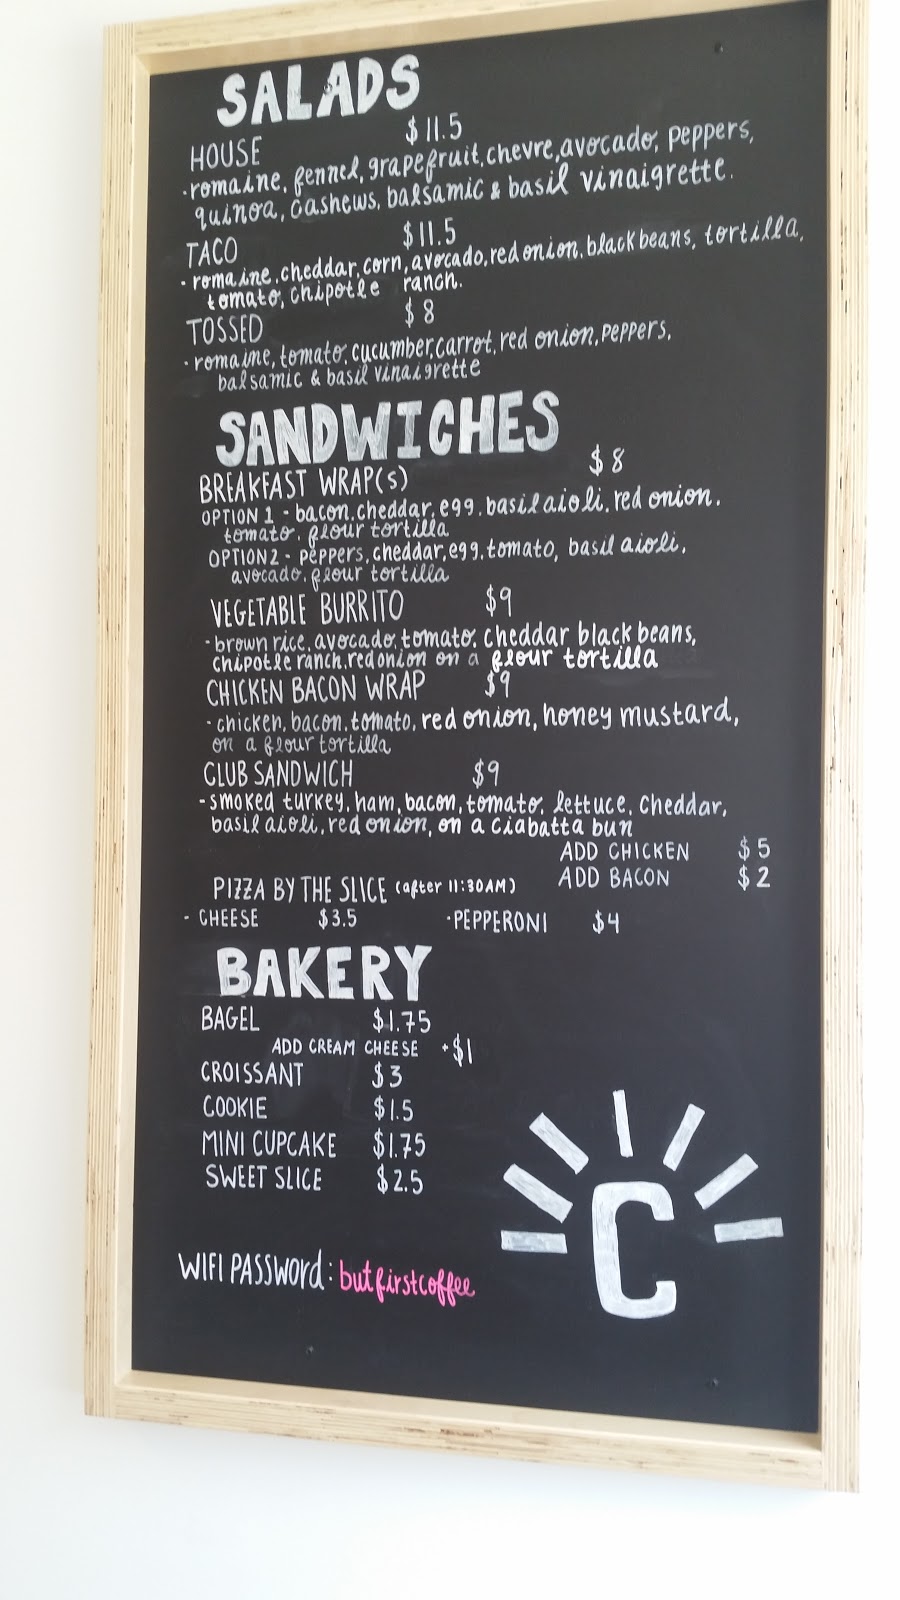 SALADS
HOUSE $11.5
· romaine, fennel, grapefruit, chevre, avocado, peppers,
quinoa, cashews, balsamic & basil vinaigrette.
TACO $11.5
· romaine, cheddar, corn, avocado, red onion, black beans, tortilla,
tomato, chipotle ranch.
TOSSED $8
· romaine, tomato, cucumber, carrot, red onion, peppers,
balsamic & basil vinaigrette
SANDWICHES
BREAKFAST WRAP(S) $8
OPTION 1 - bacon, cheddar, egg, basil aioli, red onion,
tomato, flour tortilla
OPTION 2 - peppers, cheddar, egg, tomato, basil aioli,
avocado, flour tortilla
VEGETABLE BURRITO $9
- brown rice, avocado, tomato, cheddar black beans,
chipotle ranch, red onion on a flour tortilla
CHICKEN BACON WRAP $9
· chicken, bacon, tomato, red onion, honey mustard,
on a flour tortilla
CLUB SANDWICH $9
- smoked turkey, ham, bacon, tomato, lettuce, cheddar,
basil aioli, red onion, on a ciabatta bun
ADD CHICKEN $5
ADD BACON $2
PIZZA BY THE SLICE (after 11:30AM)
- CHEESE $3.5 · PEPPERONI $4
BAKERY
BAGEL $1.75
ADD CREAM CHEESE +$1
CROISSANT $3
COOKIE $1.5
MINI CUPCAKE $1.75
SWEET SLICE $2.5
C
WIFI PASSWORD: butfirstcoffee